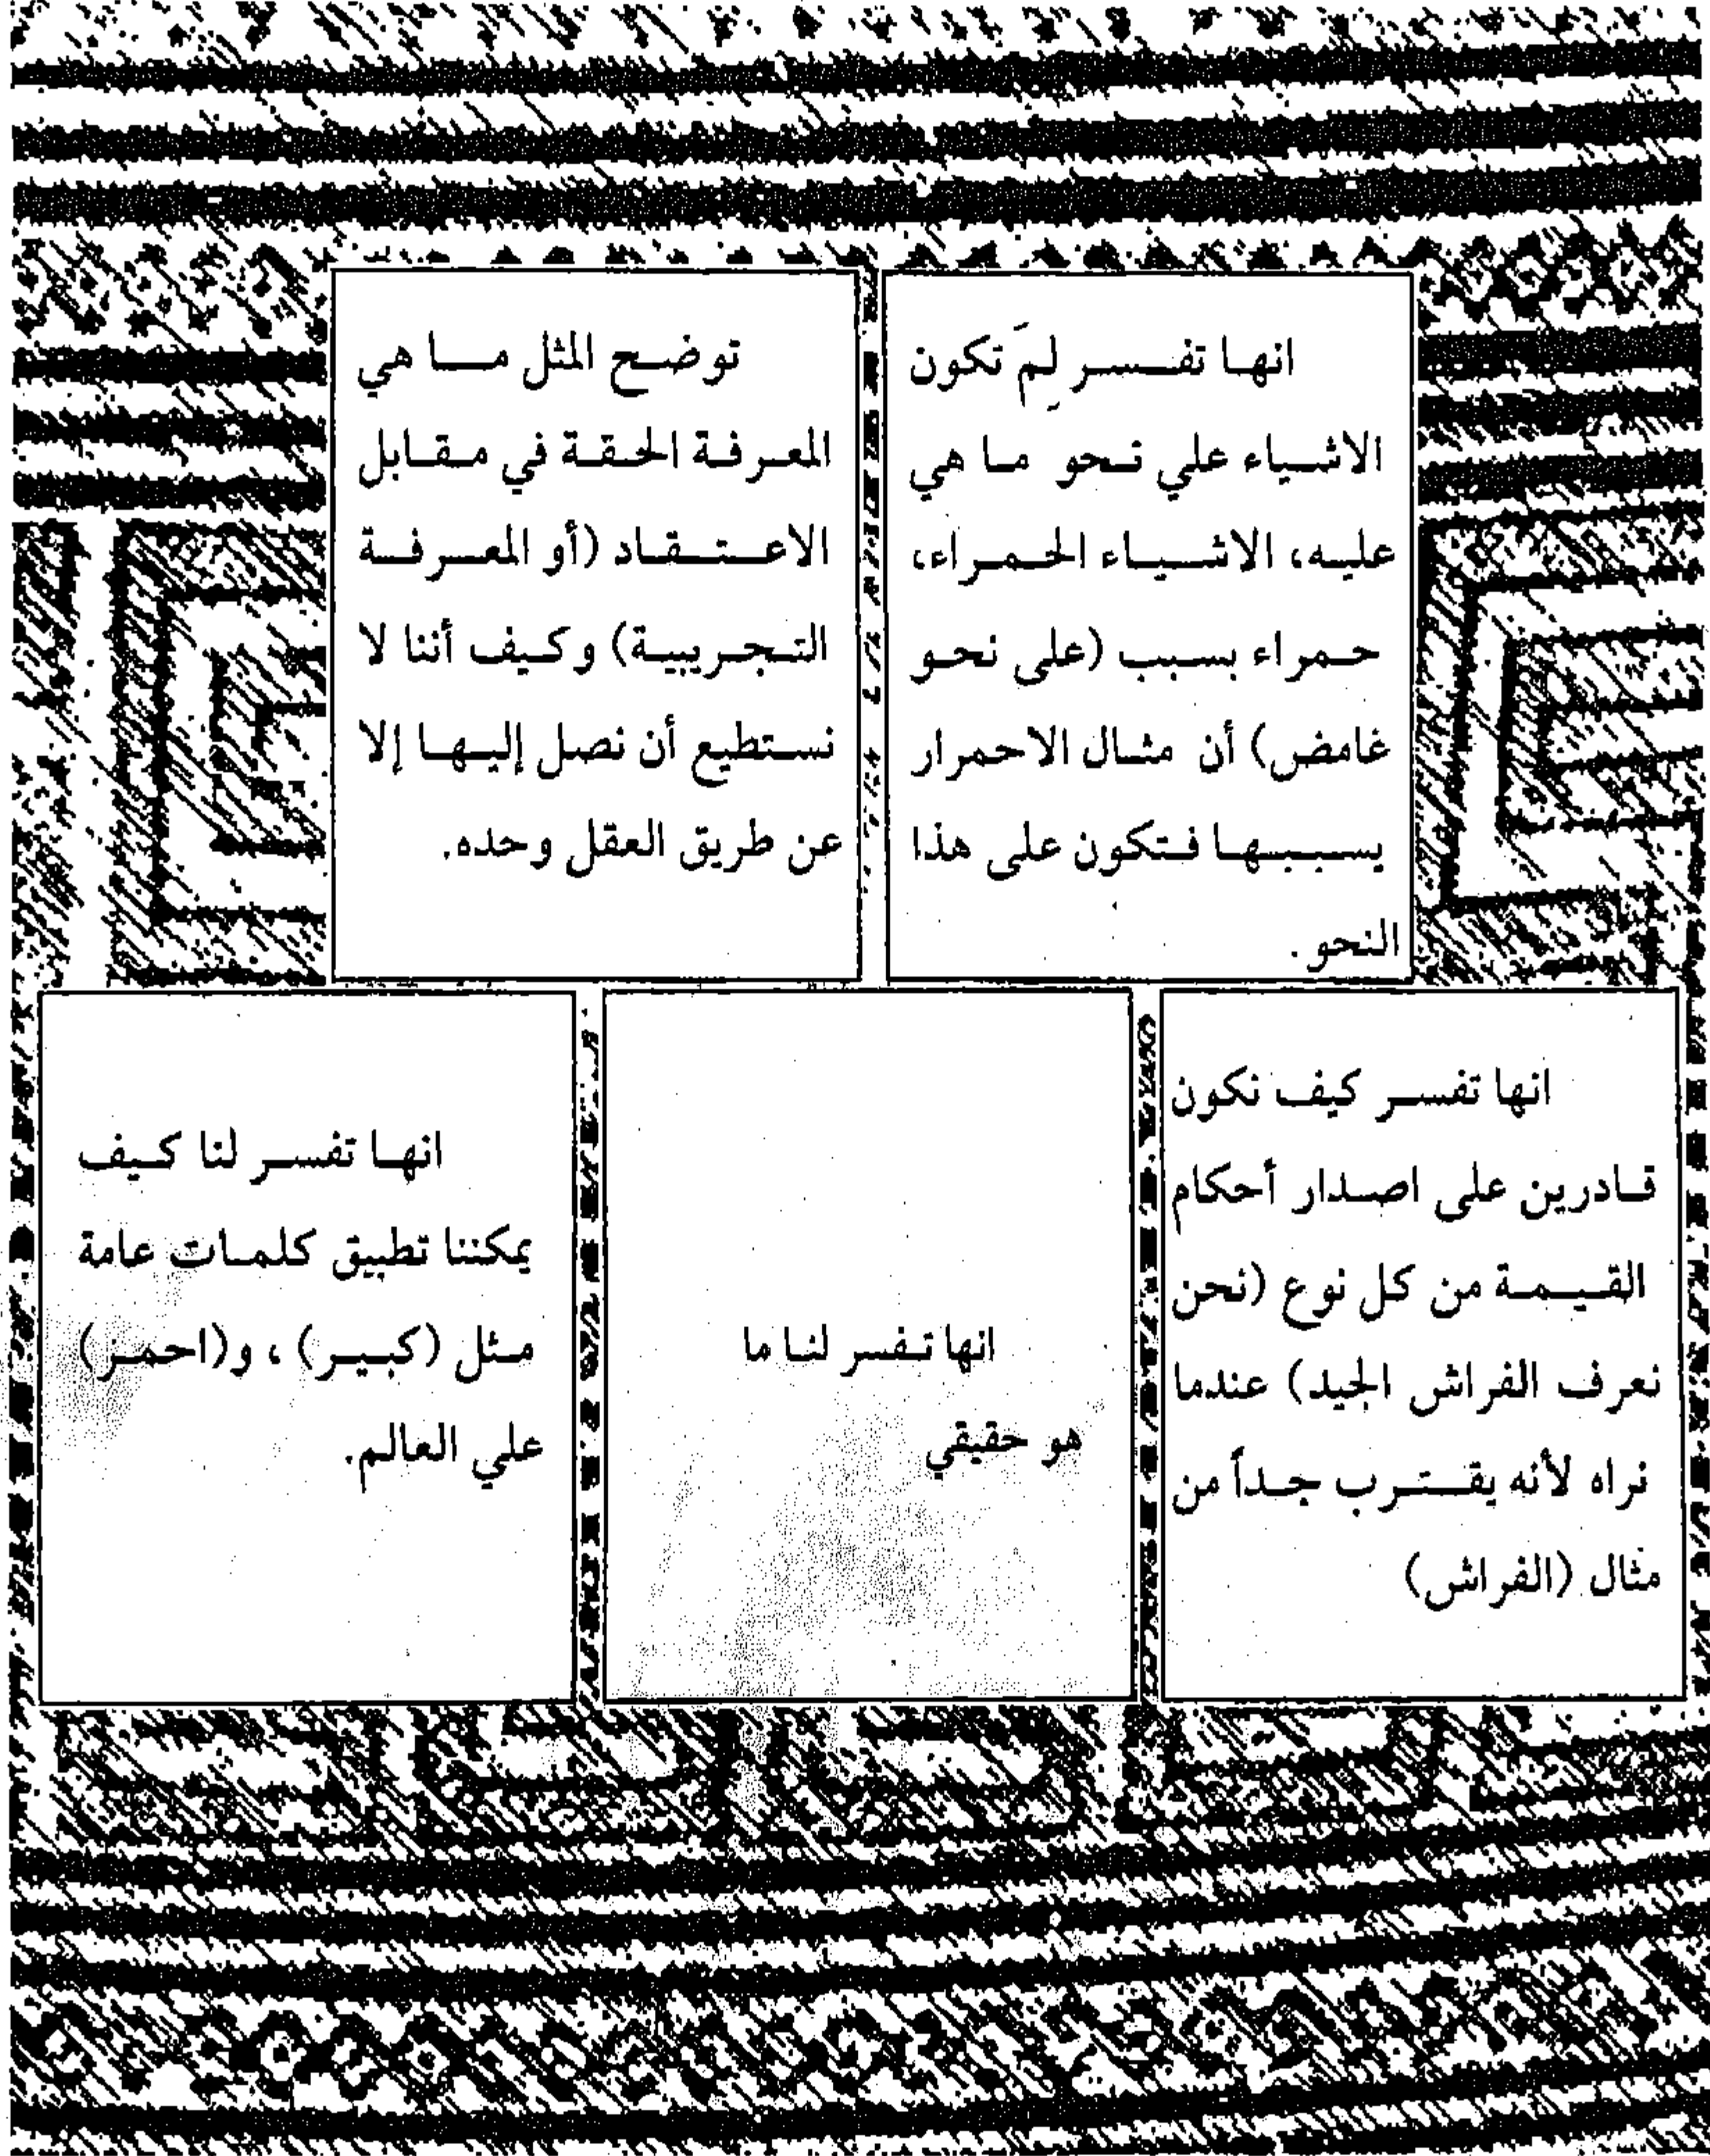 انها تفسر لِمَ تكون
الاشياء علي نحو ما هي
عليه، الاشياء الحمراء،
حمراء بسبب (على نحو
غامض) أن مثال الاحمرار
يسببها فتكون على هذا
النحو.
توضح المثل ما هي
المعرفة الحقة في مقابل
الاعتقاد (أو المعرفة
التجريبية) وكيف أننا لا
نستطيع أن نصل إليها إلا
عن طريق العقل وحده.
انها تفسر كيف نكون
قادرين على اصدار أحكام
القيمة من كل نوع (نحن
نعرف الفراش الجيد) عندما
نراه لأنه يقترب جداً من
مثال (الفراش)
انها تفسر لنا ما
هو حقيقي
انها تفسر لنا كيف
يمكننا تطبيق كلمات عامة
مثل (كبير) ، و(احمر)
علي العالم.